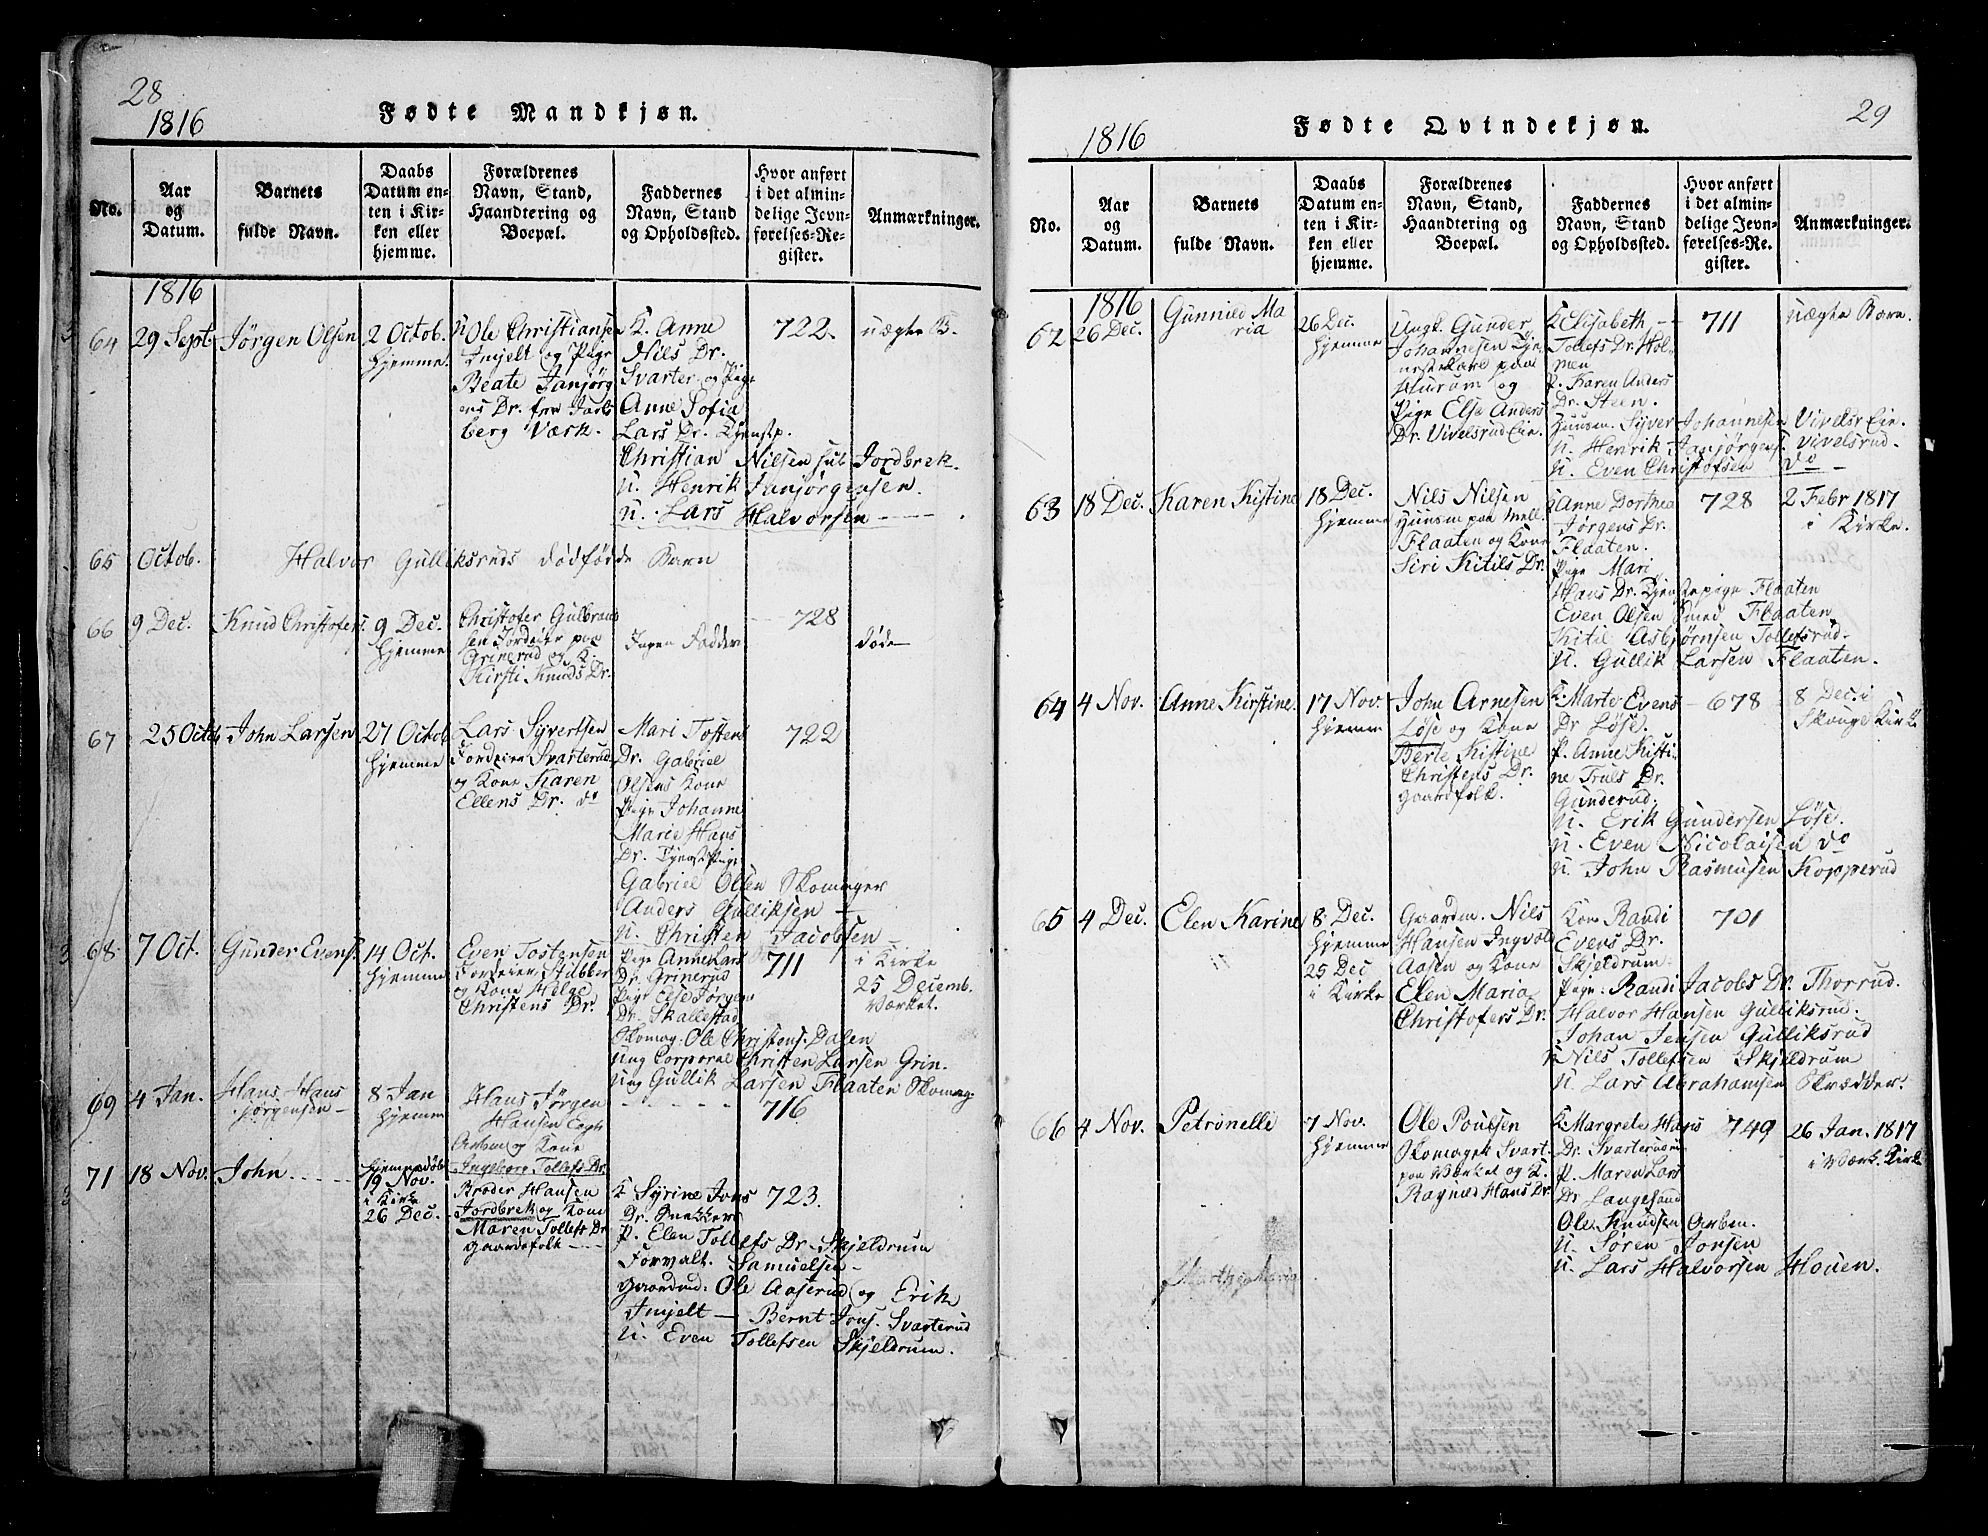 28
1816
Fødte Mandkjøn.
No.
Aar
og
Datum.
Barnets
fulde Navn.
Daabs
Datum en-
ten i Kir-
ken eller
hjemme.
Forældrenes
Navn, Stand,
Haandtering og
Boepæl.
Faddernes
Navn, Stand
og Opholdssted.
Hvor anført
i det almin-
delige Jevn-
førelses-Re-
gister.
Anmærkninger.
1816
64
29 Sept.
Jørgen Olsen
2 Octob.
hjemme.
U Ole Christiansen
og Pige
Beate Janjørg
ens Dr. fra Jarls
berg Værk.
K. Anne
Nils Dr.
Svarter og Pige
Anne Sofia
Lars Dr. Tjenstp.
Christian Nilsen Jordbrek.
U. Henrik Janjørgensen.
U. Lars Halvorsen
722
uægte B.
65
Octob.
Halvor Gulliksruds dødfødde Barn
66
9 Dec.
Knud Christofers.
9 Dec.
hjemme
Christofer Gulbrand
sen Jordeier paa
Grinerud og K.
Kirsti Knuds Dr.
Ingen Fadder
728
døde
67
25 Octob
John Larsen
27 Octob
hjemme
Lars Syvertsen
Jordeier Svarterud
og Kone Karen
Ellens Dr. do
Mari Tosten
Dr. Gabriel
Olsens Kone
Pige Johanne
Marie Hans
Dr. Tjenstpige
Gabriel Olsen Skomager
Anders Gulliksen
U. Christen Jacobsen
722
68
7 Oct.
Gunder Evens.
14 Oct.
hjemme
Even Tostensen
Jordeier Stubber
og Kone Helge
Christens Dr.
Pige Anne Lars
Dr. Grinerud
Pige Else Jørgen
Dr. Skallestad
Skomag. Ole Christens. Dalen
Ung Corporal Christen Larsen Grin.
Ung Gullik Larsen Flaaten Skomag
711
i Kirke
25 Decemb.
Værket.
69
4 Jan.
Hans Hans
jørgensen
8 Jan
hjemme
Hans Jørgen
Hansen
Arbm og Kone
Ingeborg Tollefs Dr.
716
71
18 Nov.
John
hjemmedøbt
19 Nov.
i Kirke
26 Dec.
Broder Hansen
Jordbrek og Kone
Maren Tollefs Dr
gaardefolk
K Syrine Jons
Dr. Snekker
P. Elen Tollefs Dr. Skjeldrum
Forvalt. Samuelsen
Gaardmd. Ole Aaserud og Erik
Bernt Jons. Svarterud
U. Even Tollefsen Skjeldrum.
723.
29
1816
Fødte Qvindekjøn.
No.
Aar
og
Datum.
Barnets
fulde Navn.
Daabs
Datum en-
ten i Kir-
ken eller
hjemme.
Forældrenes
Navn, Stand,
Haandtering og
Boepæl.
Faddernes
Navn, Stand
og Opholdssted.
Hvor anført
i det almin-
delige Jevn-
førelses-Re-
gister.
Anmærkninger.
1816
62
26 Dec.
Gunnild Ma
ria
26 Dec.
hjemme
Ungk. Gunder
Johannesen Tje
nestekarl paa
Hurum og
Pige Else Anders
Dr. Vivelsrud Eie.
K Elisabeth
Tollefs Dr. Hol
men
P. Karen Anders
Dr. Steen.
Huusm. Syver Johannesen Vivelsr Eie.
U. Henrik Janjørgens. Vivelsrud.
U. Even Christofsen do
711
uægte Barn.
63
18 Dec.
Karen Kistine
18 Dec.
hjemme
Nils Nilsen
Huusm paa Mell.
Flaaten og Kone
Siri Kitils Dr.
K Anne Dorthea
Jørgens Dr.
Flaaten.
Pige Mari
Hans Dr. Tjenstepige Flaaten
Even Olsen Smed Flaaten
Kitil Asbjørnsen Tollefsrud
U. Gullik Larsen Flaaten.
728
2 Febr 1817
i Kirke.
64
4 Nov.
Anne Kirstine.
17 Nov.
hjemme
John Arnesen
Løse og Kone
Berte Kistine
Christens Dr.
gaardfolk.
K. Marte Evens
Dr Løse.
P. Anne Kisti
ne Truls Dr.
Gunderud.
U. Erik Gundersen Løse.
U. Even Nicolaisen do
U. John Rasmusen Kopperud
678
8 Dec. i
Skouge Kirk
65
4 Dec.
Elen Karine
8 Dec.
hjemme
25 Dec
i Kirke
Gaardm. Nils
Hansen Ingvols
Aasen og Kone
Elen Maria
Christofers Dr
Kone Randi
Evens Dr.
Skjeldrum
Pige Randi Jacobs Dr. Thorrud.
Halvor Hansen Gulliksrud.
Johan Jensen Gulliksrud
U Nils Tollefsen Skjeldrum
U. Lars Abrahamsen Skrædder.
701
66
4 Nov.
Petronelle
7 Nov.
hjemme
Ole Poulsen
Skomager Svart
paa Værket og K.
Ragnild Hans Dr
K Margrete Hans
Dr. Svarterud
P. Maren Lars
Dr Langesund
Ole Knudsen Arbm.
U. Søren Jonsen
U. Lars Halvorsen Houen.
749
26 Jan. 1817
i Værk. Kirk
Marthe Maria